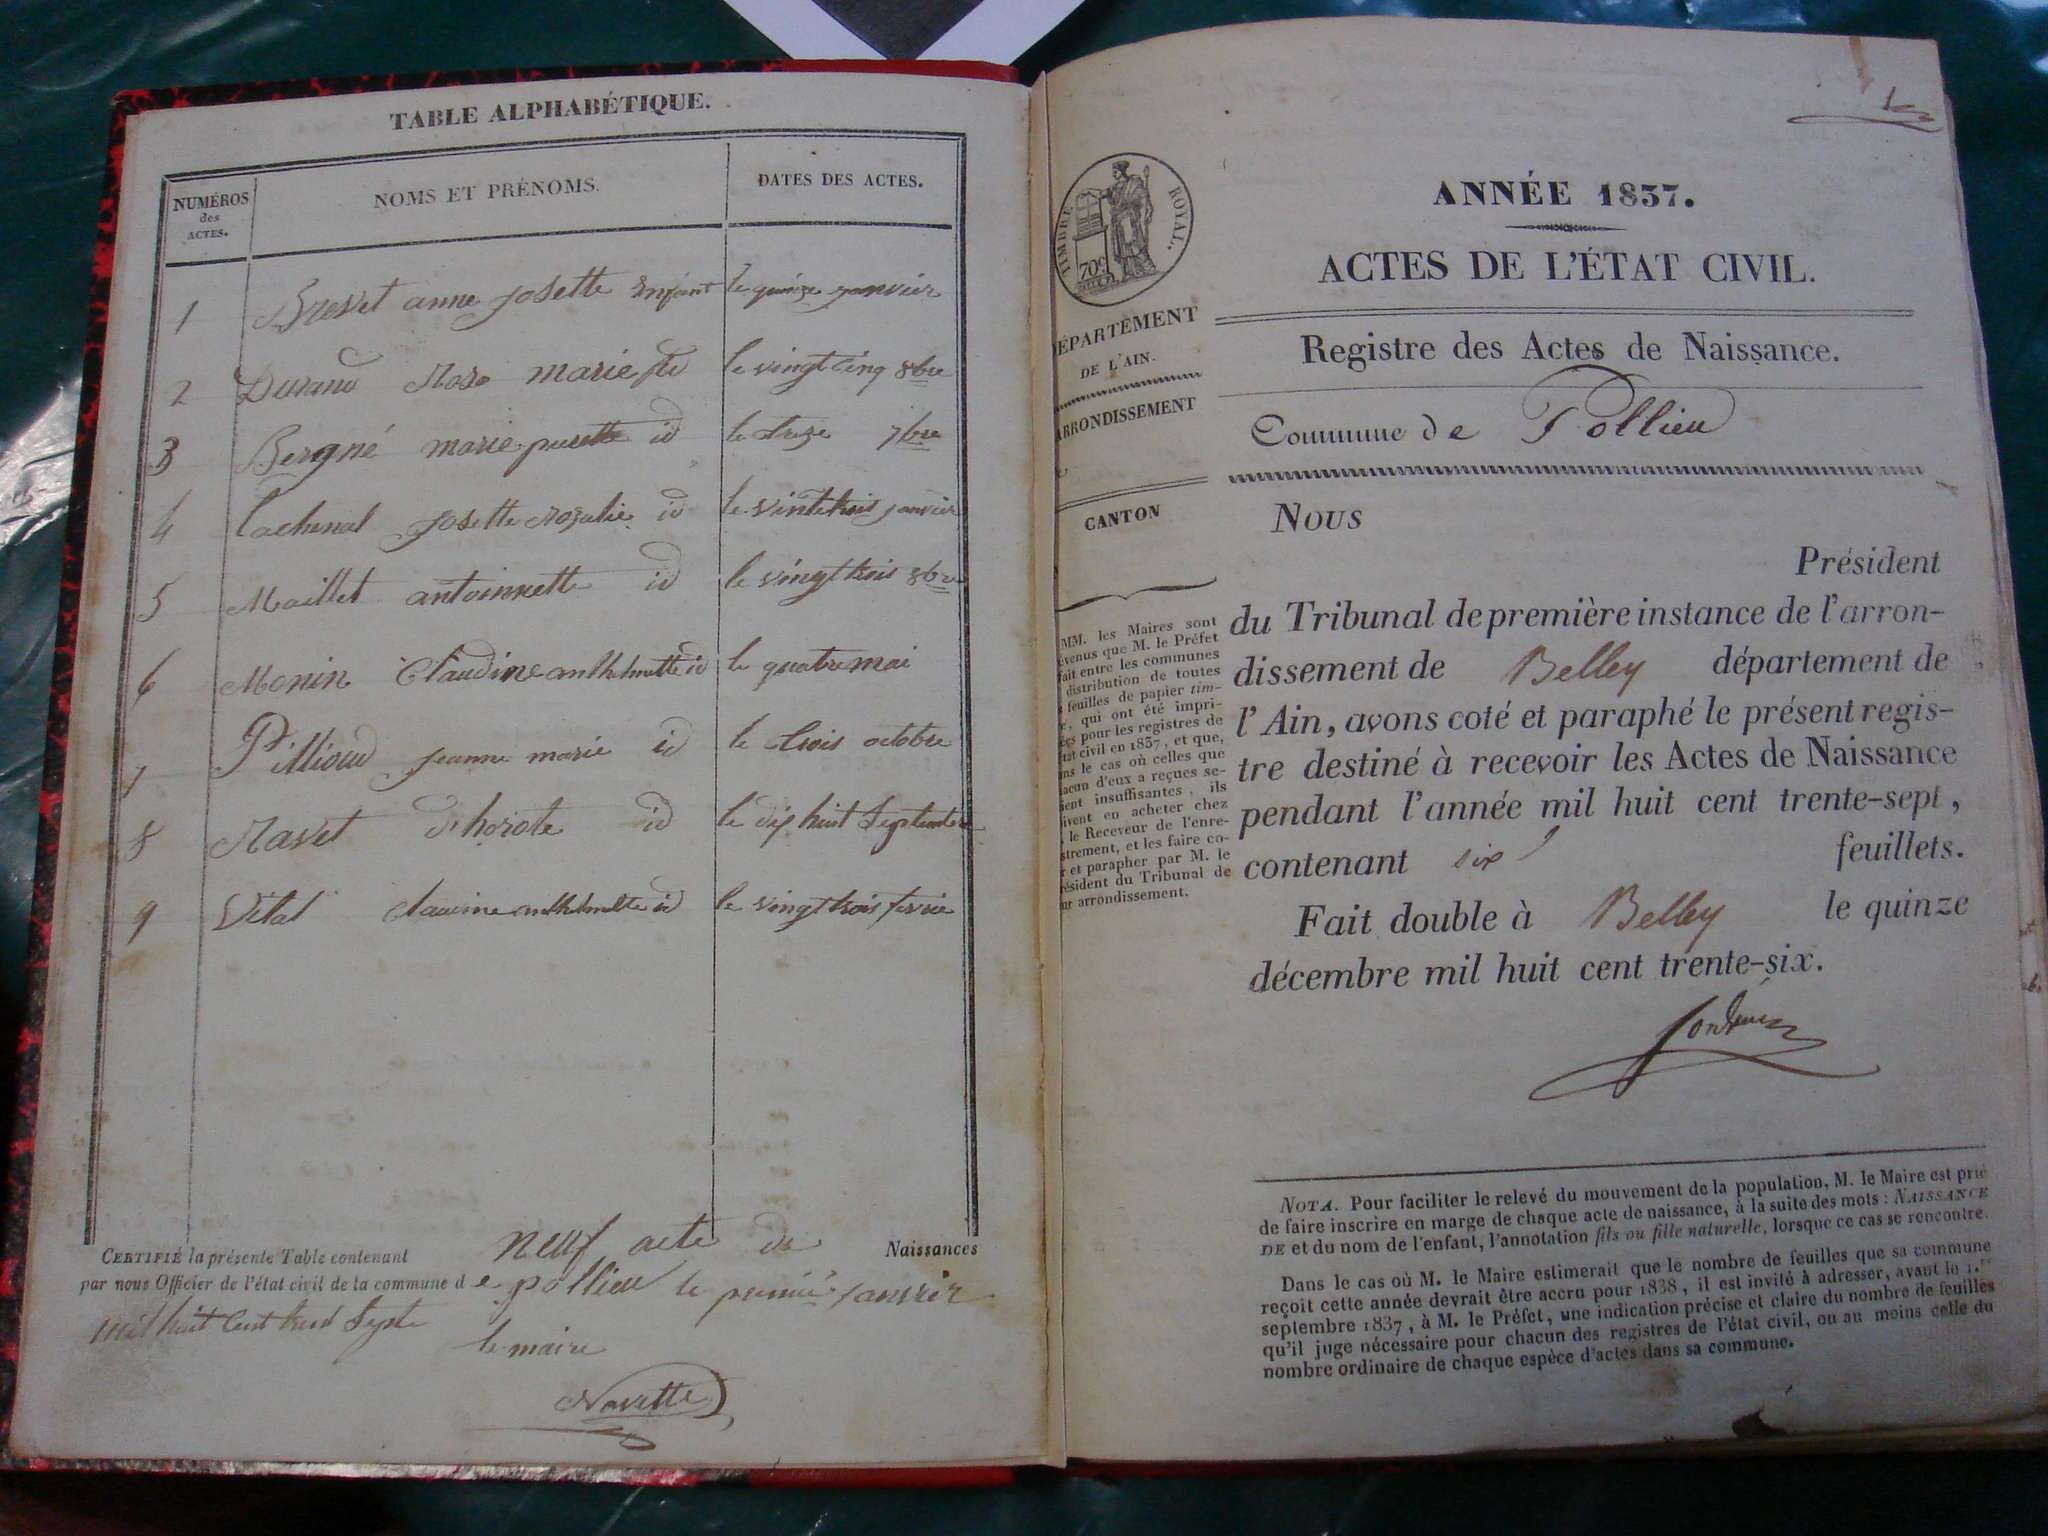 TABLE ALPHABÉTIQUE.
NUMÉROS des ACTES.
NOMS ET PRÉNOMS.
DATES DES ACTES.
1 Brevet anne josette Enfant le quinze janvier
2 Durand Rose marie id le vingt cinq 8bre
3 Bergné marie pierrette id le treze 7bre
4 Lachenal josette rosalie id le vintetrois janvier
5 Maillet antoinnette id le vingt trois 8bre
6 Monin Claudine anthelmette id le quatre mai
7 Pillioud jeanne marie id le trois octobre
8 Ravet d'horote id le dix huit Septembre
9 Vital claudine anthelmette id le vingt trois fevrie
CERTIFIÉ la présente Table contenant neuf acte de Naissances
par nous Officier de l'état civil de la commune de pollieu le premié janvier
mil huit Cent trent Septe
le maire
Navette
TIMBRE ROYAL.
70c
DÉPARTEMENT
DE L'AIN.
ARRONDISSEMENT
CANTON
MM. les Maires sont
que M. le Préfet
fait entre les communes
distribution de toutes
feuilles de papier tim-
qui ont été impri-
pour les registres de
civil en 1837, et que,
le cas où celles que
d'eux a reçues se-
insuffisantes, ils
en acheter chez
le Receveur de l'enre-
strement, et les faire co-
et parapher par M. le
Président du Tribunal de
arrondissement.
ANNÉE 1837.
ACTES DE L'ÉTAT CIVIL.
Registre des Actes de Naissance.
Commune de Pollieu
NOUS
Président
du Tribunal de première instance de l'arron-
dissement de Belley département de
l'Ain, avons coté et paraphé le présent regis-
tre destiné à recevoir les Actes de Naissance
pendant l'année mil huit cent trente-sept,
contenant six feuillets.
Fait double à Belley le quinze
décembre mil huit cent trente-six.
NOTA. Pour faciliter le relevé du mouvement de la population, M. le Maire est prié
de faire inscrire en marge de chaque acte de naissance, à la suite des mots : NAISSANCE
DE et du nom de l'enfant, l'annotation fils ou fille naturelle, lorsque ce cas se rencontre.
Dans le cas où M. le Maire estimerait que le nombre de feuilles que sa commune
reçoit cette année devrait être accru pour 1838, il est invité à adresser, avant le 1.er
septembre 1837, à M. le Préfet, une indication précise et claire du nombre de feuilles
qu'il juge nécessaire pour chacun des registres de l'état civil, ou au moins celle du
nombre ordinaire de chaque espèce d'actes dans sa commune.